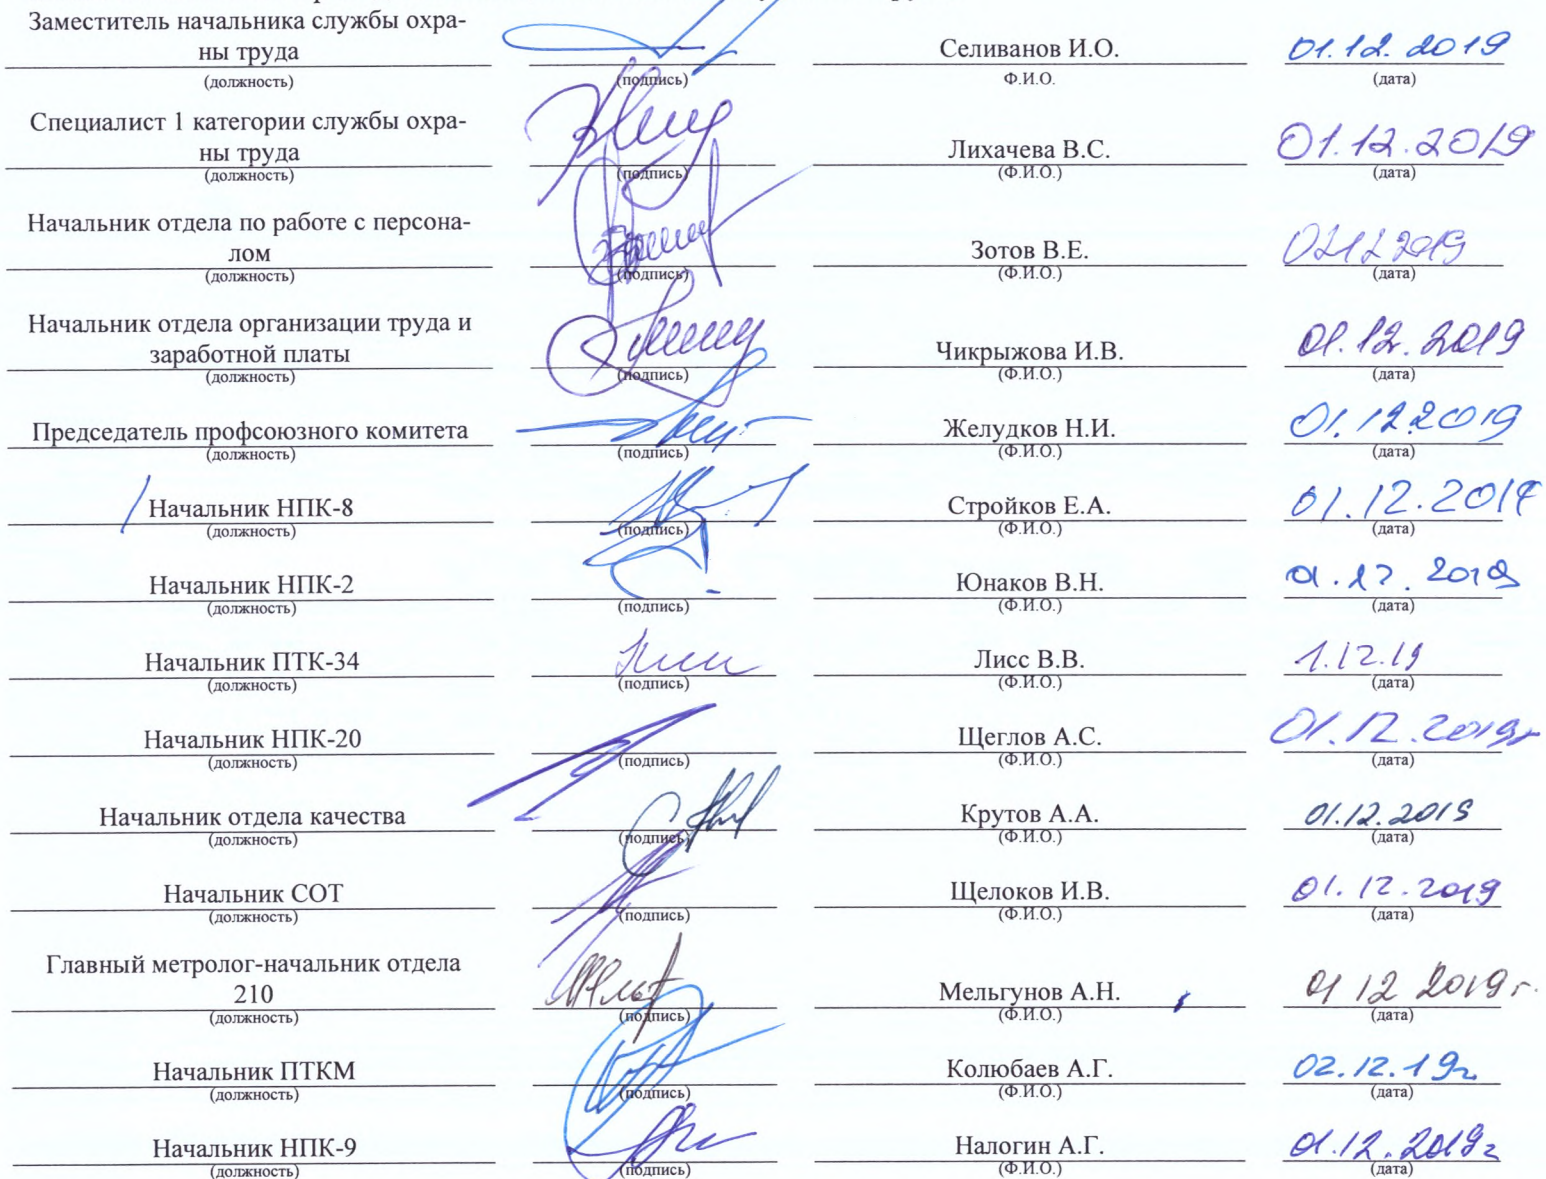 Заместитель начальника службы охра-
ны труда Селиванов И.О. 01.12.2019
(должность) (подпись) Ф.И.О. (дата)
Специалист 1 категории службы охра-
ны труда Лихачева В.С. 01.12.2019
(должность) (подпись) (Ф.И.О.) (дата)
Начальник отдела по работе с персона-
лом Зотов В.Е.
(должность) (подпись) (Ф.И.О.) (дата)
Начальник отдела организации труда и
заработной платы Чикрыжова И.В. 01.12.2019
(должность) (подпись) (Ф.И.О.) (дата)
Председатель профсоюзного комитета Желудков Н.И. 01.12.2019
(должность) (подпись) (Ф.И.О.) (дата)
Начальник НПК-8 Стройков Е.А. 01.12.2019
(должность) (подпись) (Ф.И.О.) (дата)
Начальник НПК-2 Юнаков В.Н. 01.12.2019
(должность) (подпись) (Ф.И.О.) (дата)
Начальник ПТК-34 Лисс В.В. 1.12.19
(должность) (подпись) (Ф.И.О.) (дата)
Начальник НПК-20 Щеглов А.С. 01.12.2019г
(должность) (подпись) (Ф.И.О.) (дата)
Начальник отдела качества Крутов А.А. 01.12.2019
(должность) (подпись) (Ф.И.О.) (дата)
Начальник СОТ Щелоков И.В. 01.12.2019
(должность) (подпись) (Ф.И.О.) (дата)
Главный метролог-начальник отдела
210 Мельгунов А.Н. 01 12 2019г.
(должность) (подпись) (Ф.И.О.) (дата)
Начальник ПТКМ Колюбаев А.Г. 02.12.19г
(должность) (подпись) (Ф.И.О.) (дата)
Начальник НПК-9 Налогин А.Г. 01.12.2019г
(должность) (подпись) (Ф.И.О.) (дата)